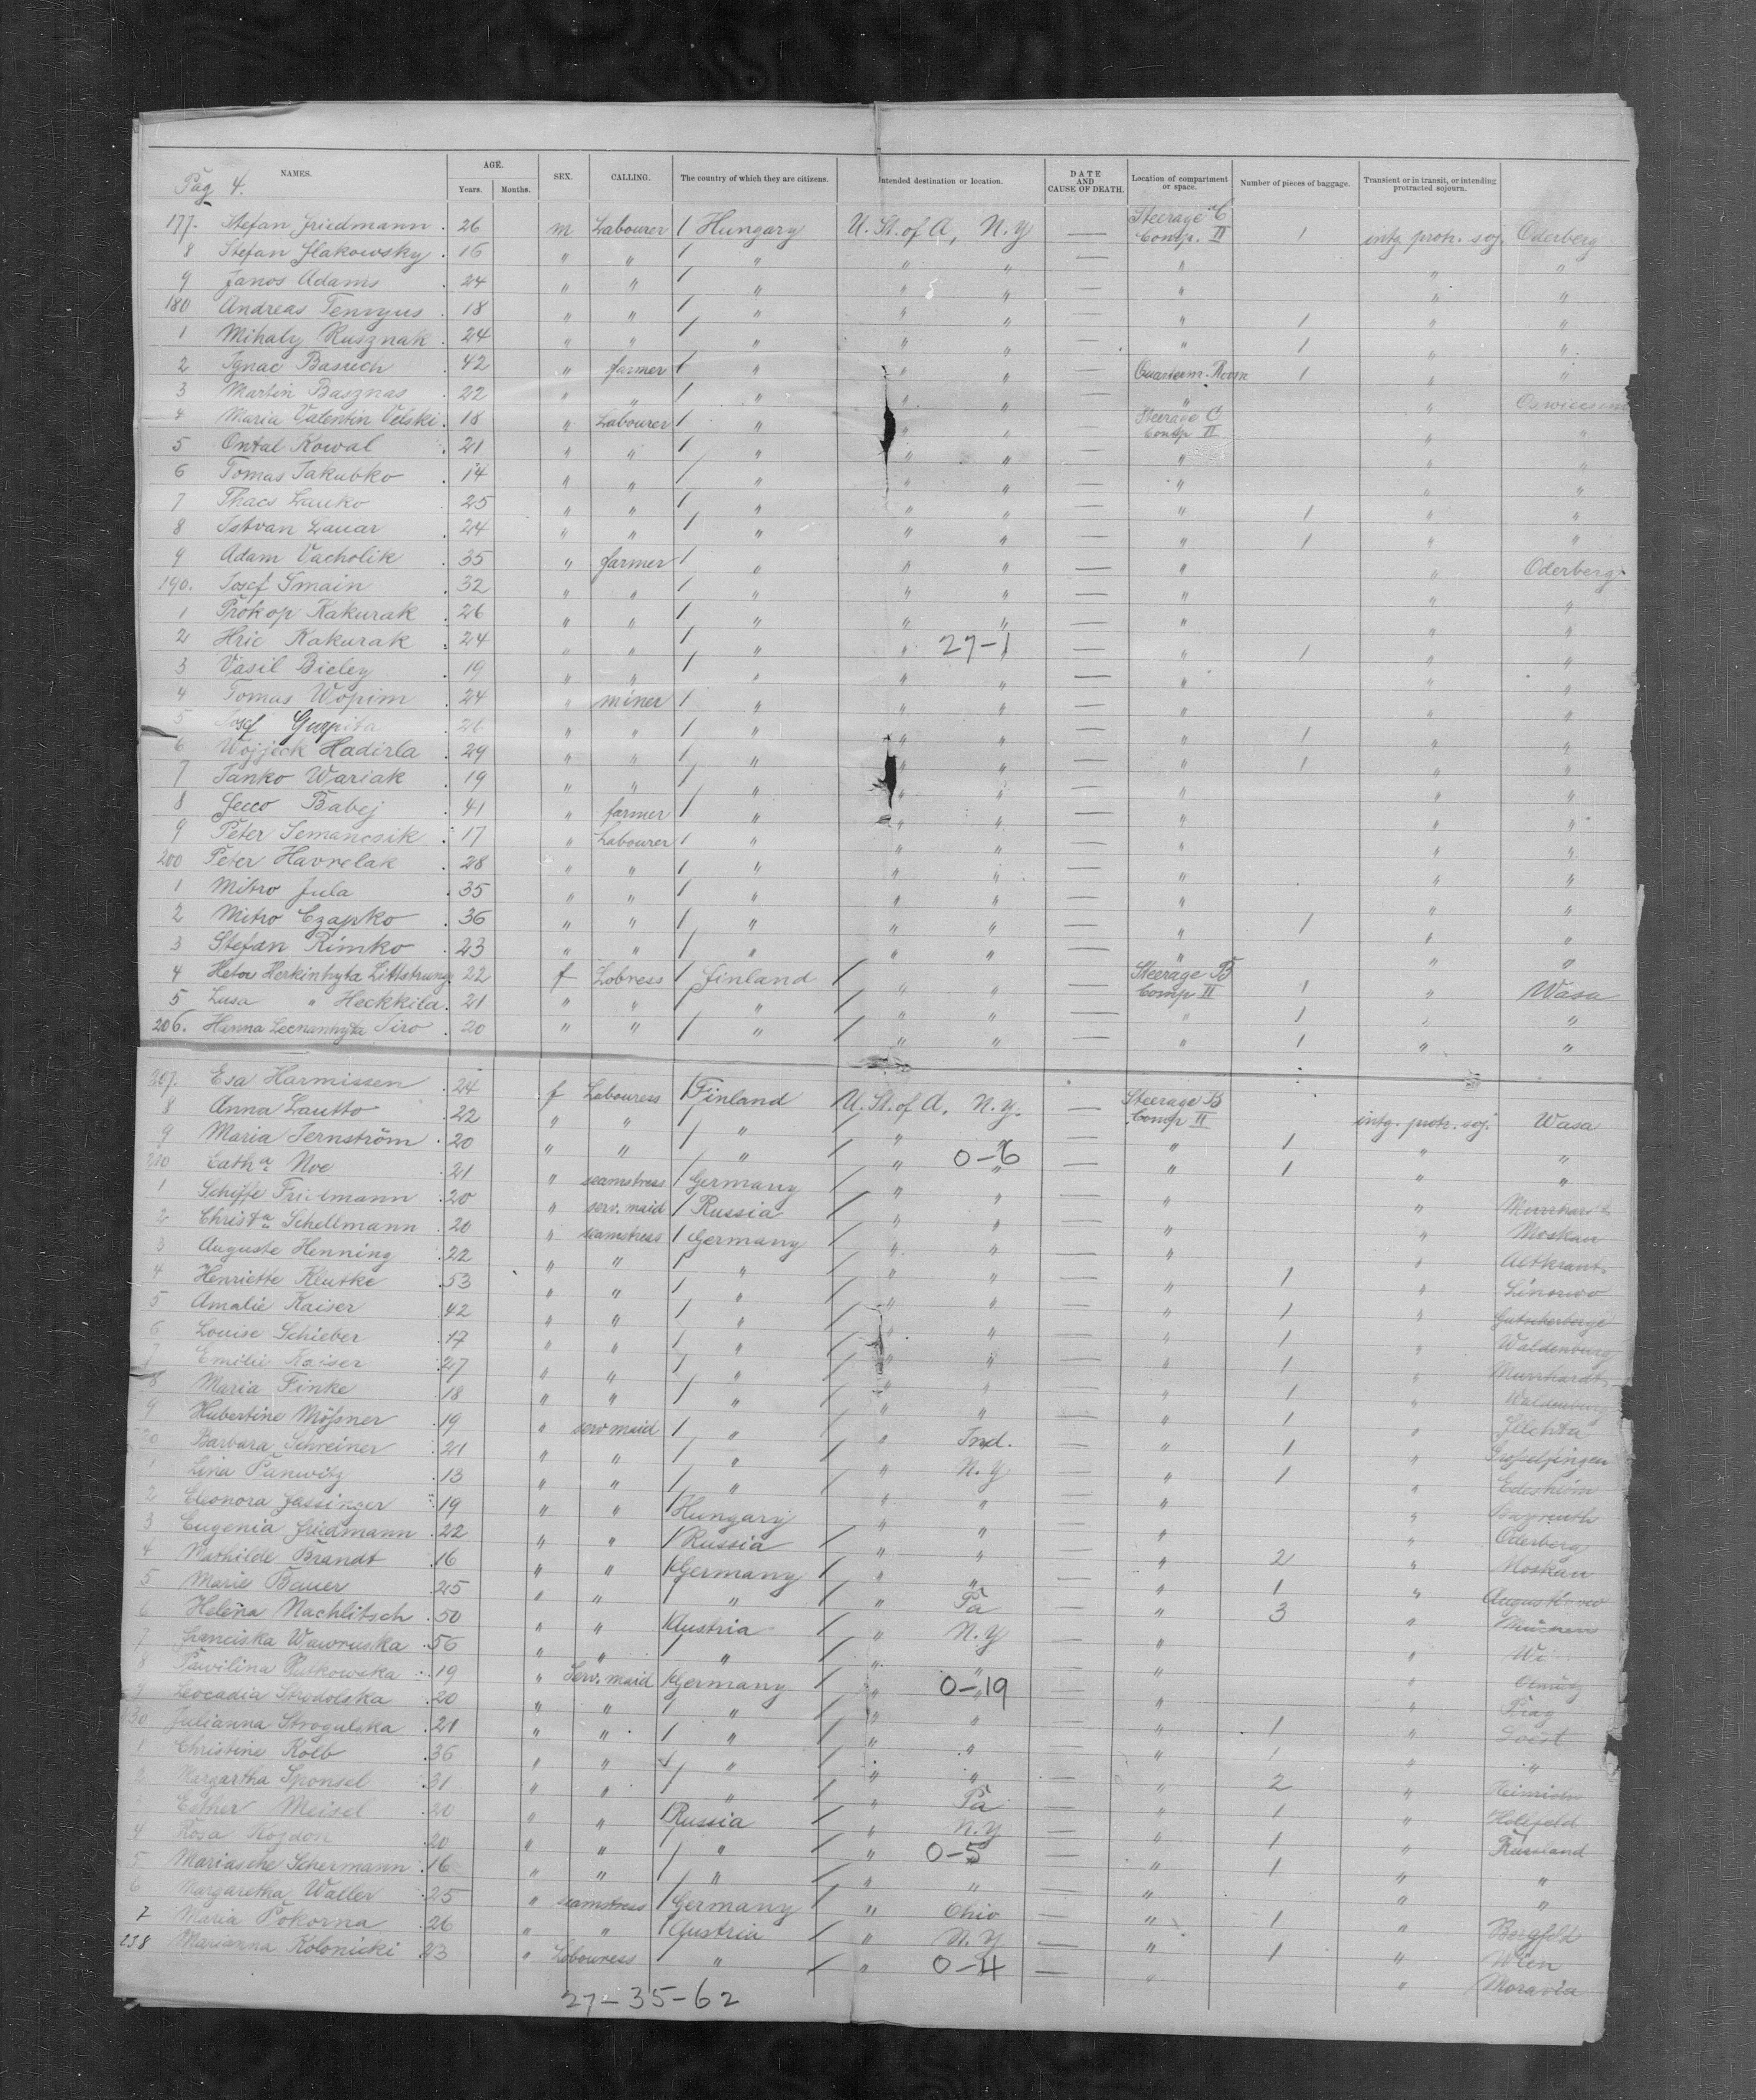 NAMES. AGE. Years. Months. SEX. CALLING. The country of which they are citizens. Intended destination or location. DATE AND CAUSE OF DEATH. Location of compartment or space. Number of pieces of baggage. Transient or in transit, or intending protracted sojourn.
Pag 4.
177. Stefan Friedmann 26 m Labourer / Hungary U. St. of A, N.Y — Steerage C Comp. II 1 intg protr. soj. Oderberg
8 Stefan Hakowsky 16 " " / " " " — " " "
9 Janos Adams 24 " " / " " " — " " "
180 Andreas Tenyus 18 " " / " " " — " 1 " "
1 Mihaly Rusznak 24 " " / " " " — " 1 " "
2 Ignac Basuch 42 " farmer / " " " — Quarterm. Room 1 " "
3 Martin Basznas 22 " " / " " " — " " Oswiecsim
4 Maria Valentin Velski 18 " Labourer / " " " — Steerage C Comp II " "
5 Ontal Kowal 21 " " / " " " — " " "
6 Tomas Jakubko 14 " " / " " " — " " "
7 Thacs Lauko 25 " " / " " " — " 1 " "
8 Istvan Lauar 24 " " / " " " — " 1 " "
9 Adam Vacholik 35 " farmer / " " " — " " Oderberg
190. Josef Smain 32 " " / " " " — " " "
1 Prokop Kakurak 26 " " / " " " — " " "
2 Hric Kakurak 24 " " / " " 27-1 " — " 1 " "
3 Vasil Bieley 19 " " / " " " — " " "
4 Tomas Wopim 24 " miner / " " " — " " "
5 Josef 26 " " / " " " — " 1 " "
6 Wojjeck Hadirla 29 " " / " " " — " 1 " "
7 Janko Wariak 19 " " / " " " — " " "
8 Fecco Babej 41 " farmer / " " " — " " "
9 Peter Semancsik 17 " Labourer / " " " — " " "
200 Peter Havrelak 28 " " / " " " — " " "
1 Mitro Jula 35 " " / " " " — " " "
2 Mitro Czapko 36 " " / " " " — " 1 " "
3 Stefan Rimko 23 " " / " " " — " " "
4 Herkinhyta Littstrung 22 f Lobress / Finland / " " — Steerage B Comp II 1 " Wasa
5 Lusa " Heckkila 21 " " / " / " " — " 1 " "
206. Hanna Leenanhyta Siro 20 " " / " / " " — " 1 " "
207. Esa Harmissen 24 f Labouress / Finland U. St. of A. N.Y. — Steerage B Comp II intg. protr. soj. Wasa
8 Anna Lautto 22 " " / " / " " — " 1 " "
9 Maria Ternström 20 " " / " / " 0-6 " — " 1 " "
210 Catha Noe 21 " seamstress / Germany / " " — " " Murrhardt
1 Schiffe Friedmann 20 " serv. maid / Russia / " " — " " Moskau
2 Christa Schellmann 20 " seamstress / Germany / " " — " "
3 Auguste Henning 22 " " / " / " " — " 1 "
4 Henriette Klutke 53 " " / " / " " — " 1 "
5 Amalie Kaiser 42 " " / " / " " — " 1 " Waldenburg
6 Louise Schieber 17 " " / " / " " — " 1 " Murrhardt
7 Emilie Kaiser 27 " " / " / " " — " 1 " Waldenburg
8 Maria Finke 18 " " / " / " " — " 1 "
9 Hubertine Mößner 19 " serv maid / " / " Ind. — " 1 "
220 Barbara Schreiner 21 " " / " / " N.Y — " 1 "
1 Lina Panwitz 13 " " / " / " " — " " Bayreuth
2 Eleonora Fassinger 19 " " / Hungary " " — " " Oderberg
3 Eugenia Friedmann 22 " " / Russia / " " — " 2 " Moskau
4 Mathilde Brandt 16 " " / Germany / " " — " 1 "
5 Marie Bauer 25 " " / " / " Pa — " 3 " München
6 Helena Nachlitsch 50 " " / Austria / " N.Y — " "
7 Franciska Wawruska 56 " " / " / " " — " " Olmütz
8 Pawilina Rutkowska 19 " Serv. maid / Germany / " 0-19 " — " " Prag
9 Leocadia Strodolska 20 " " / " / " " — " 1 "
230 Julianna Strogulska 21 " " / " / " " — " 1 " "
1 Christine Kolb 36 " " / " / " " — " 2 "
2 Margartha Sponsel 31 " " / " / " Pa — " 1 " Hollfeld
3 Esther Meisel 20 " " / Russia / " N.Y — " 1 " Russland
4 Rosa Kogdon 20 " " / " / " 0-5 " — " 1 " "
5 Mariasche Schermann 16 " " / " / " " — " " "
6 Margaretha Waller 25 " seamstress / Germany / " Ohio — " 1 " Bergfeld
7 Maria Pokorna 26 " " / Austria / " N.Y — " 1 " Wien
238 Marianna Kolonicki 23 " Labouress / " / " 0-4 — " " Moravia
27-35-62